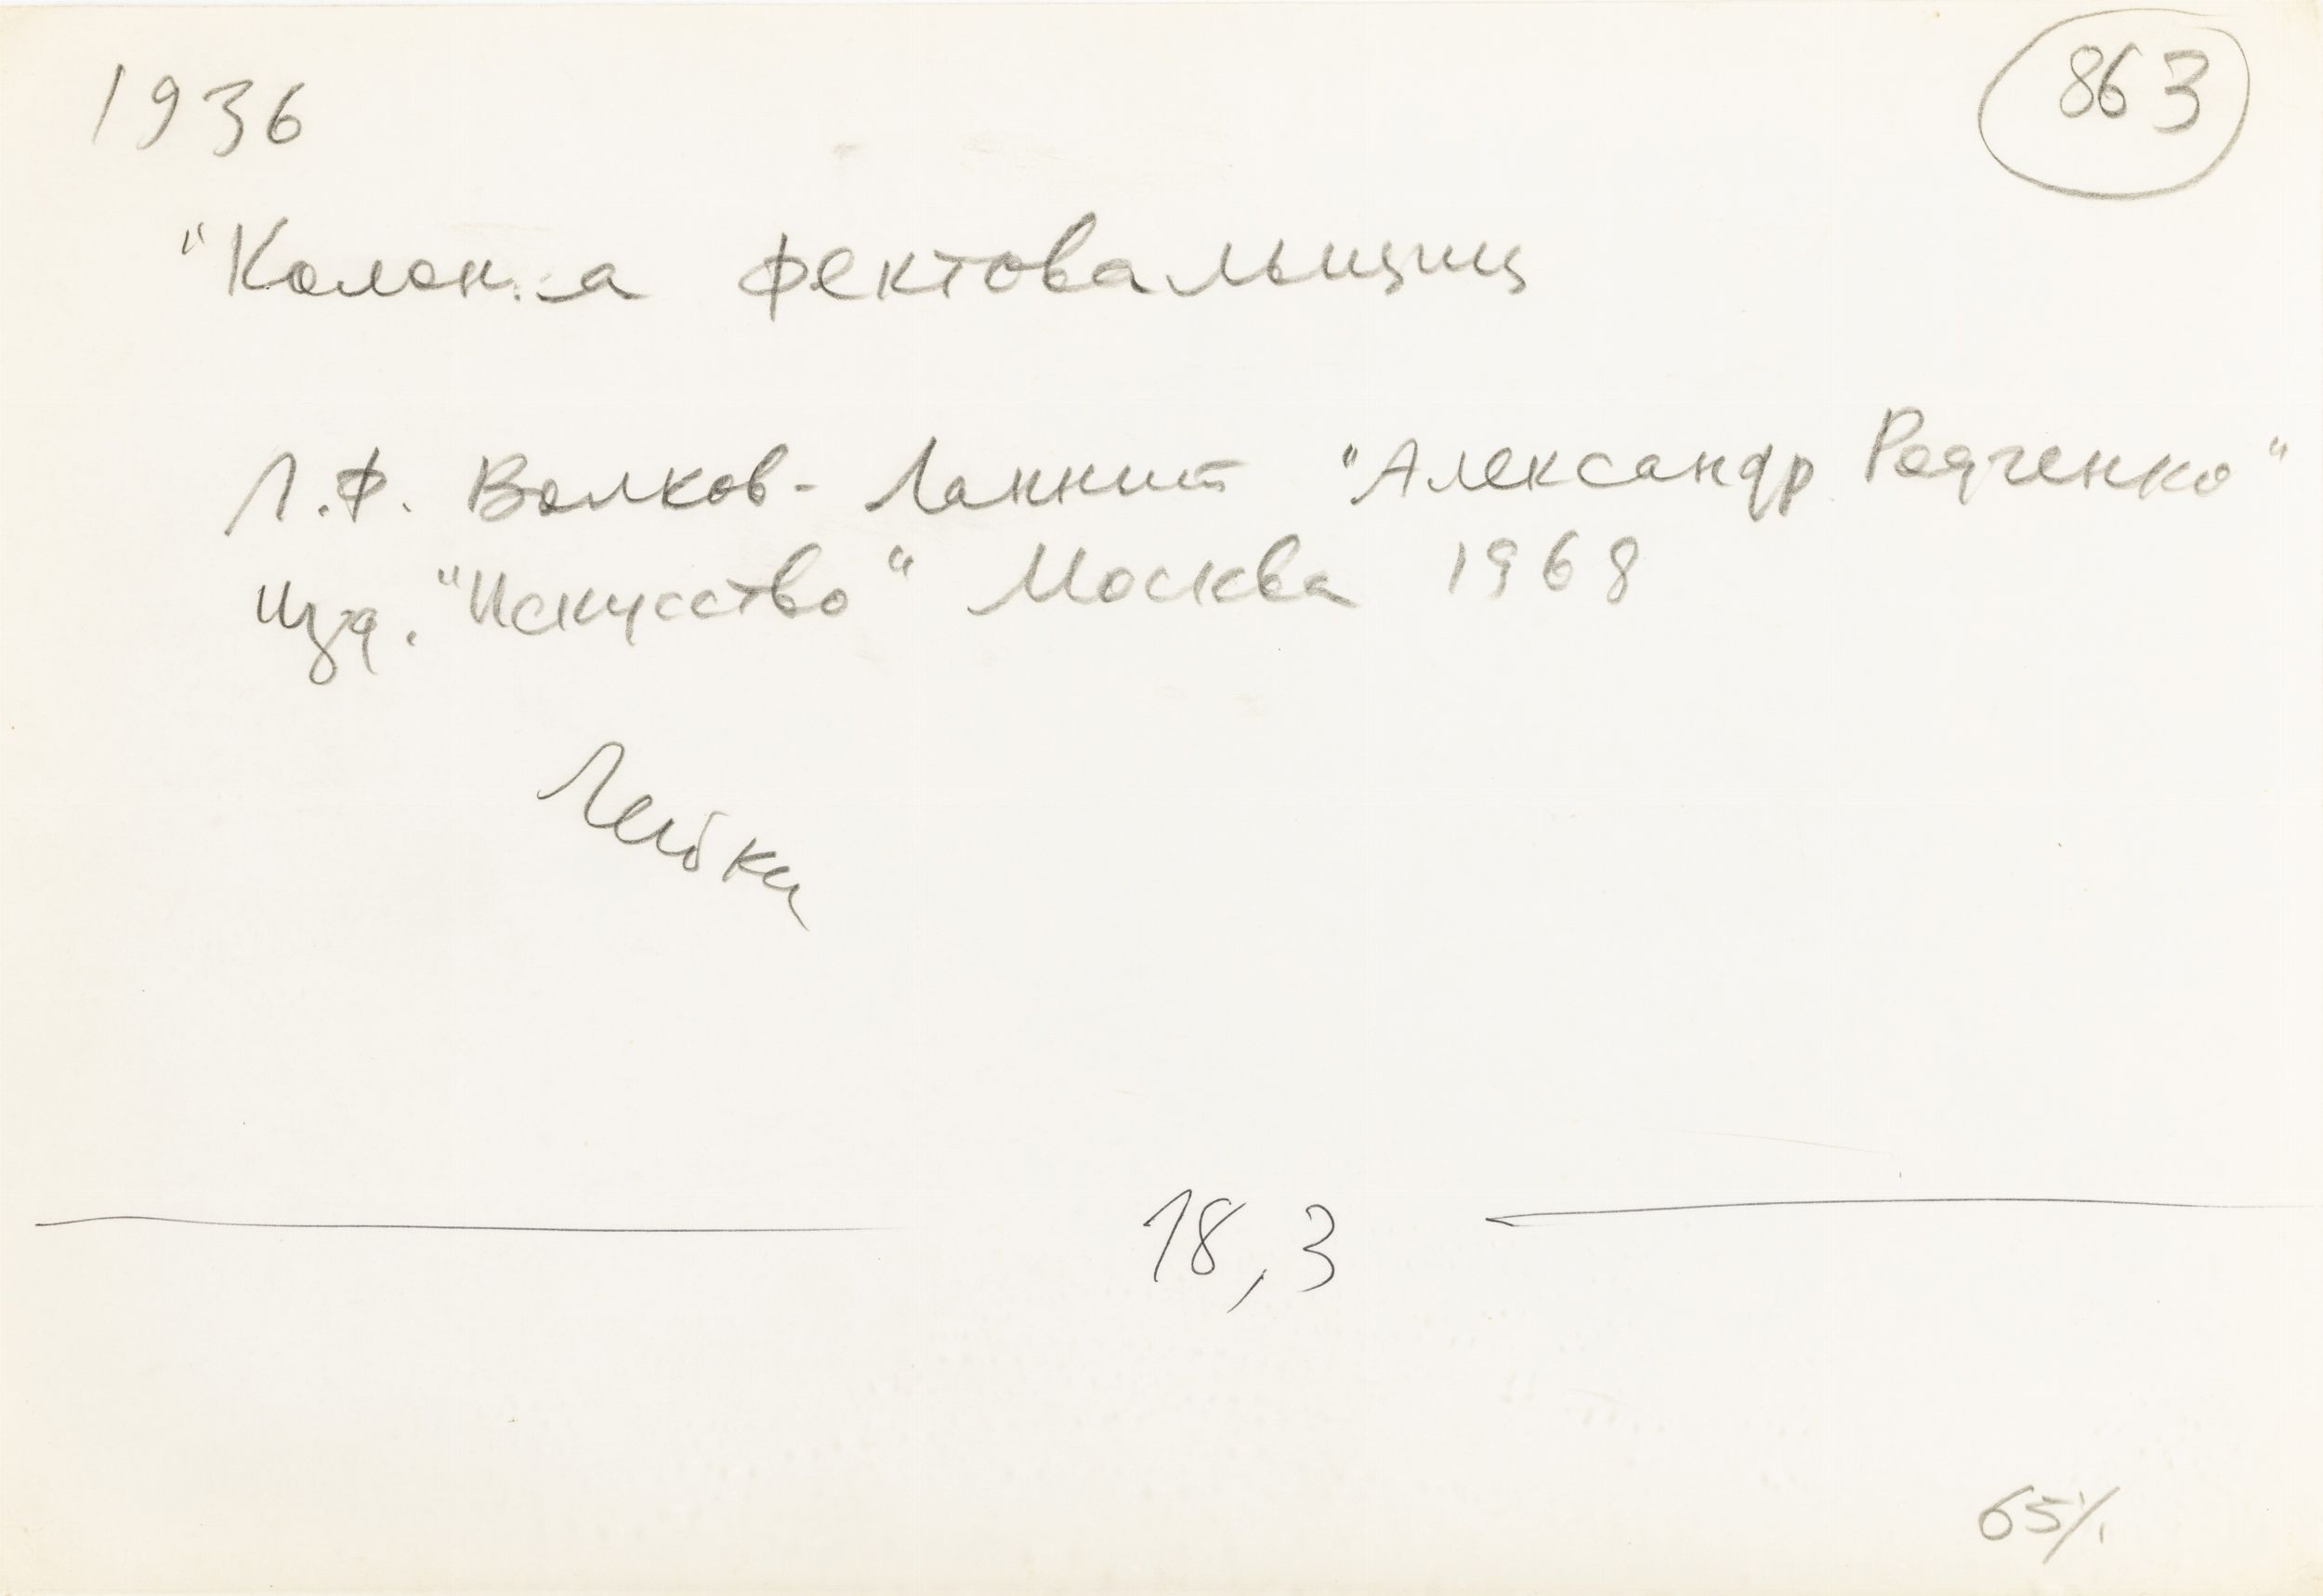 1936
863
"Колонна фектовальщиц
Л.Ф. Волков-Ланнит "Александр Родченко"
Изд. "Искусство" Москва 1968
Лейка
18,3
65%